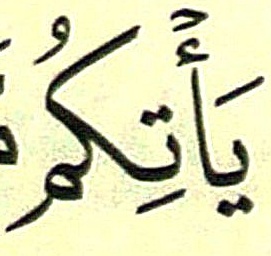 يَأْتِكُم